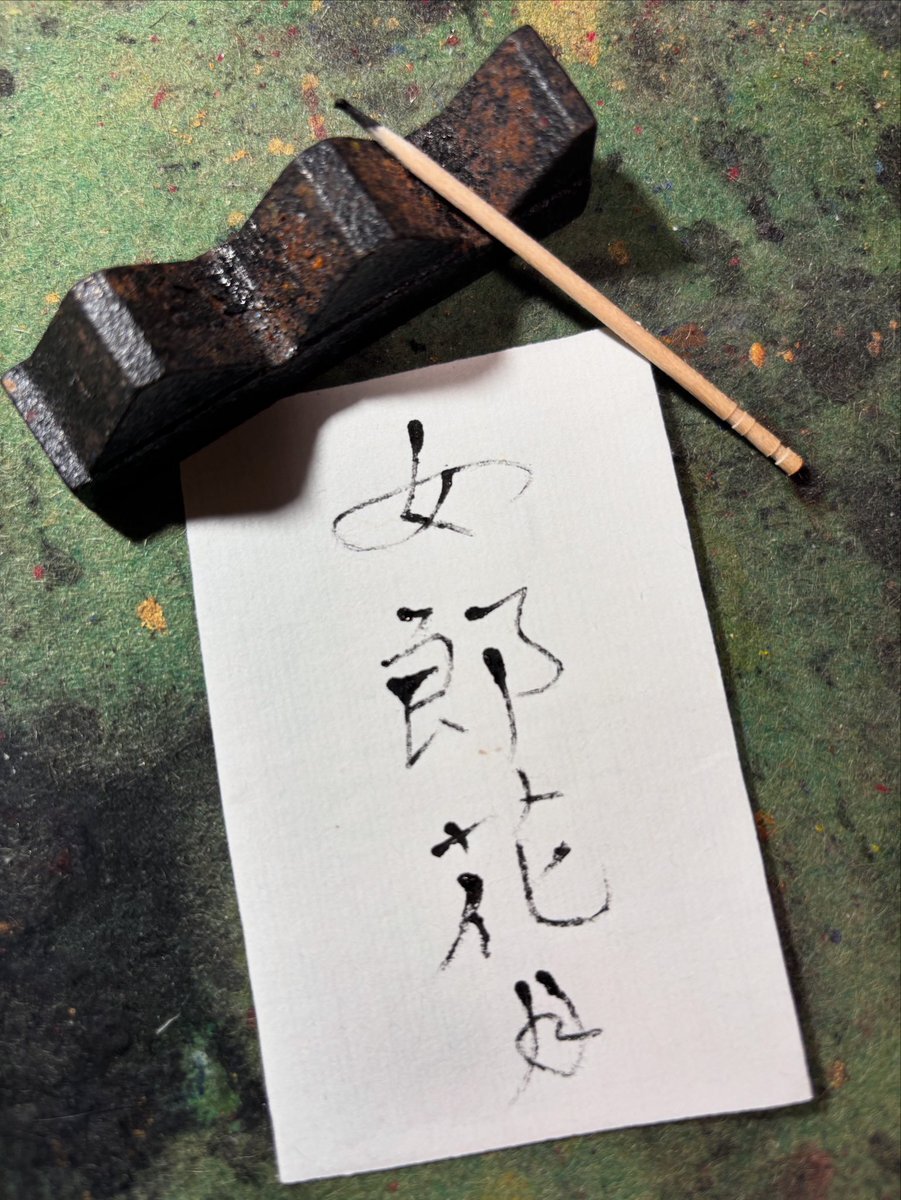 女郎花